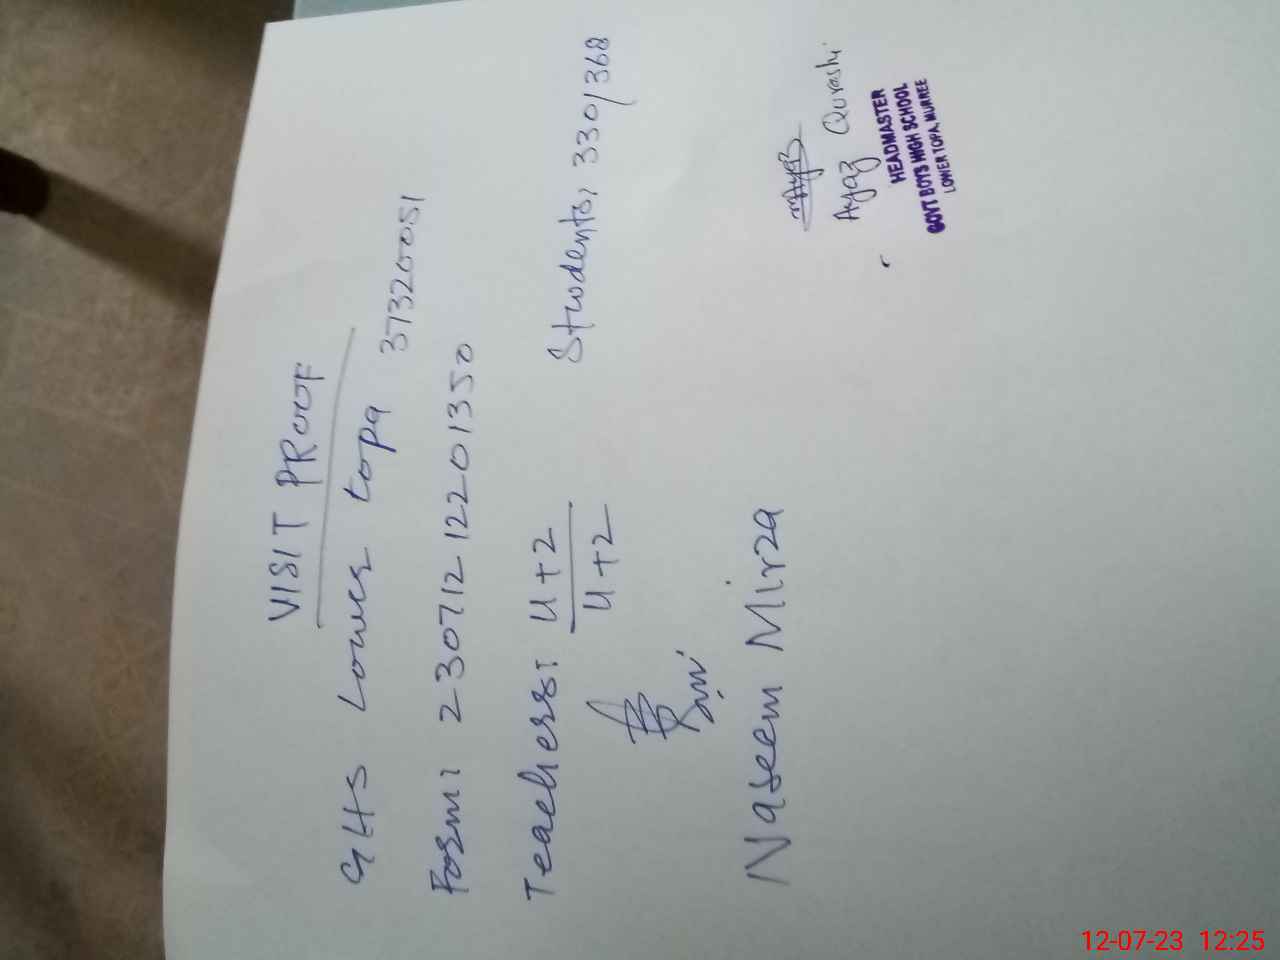 VISIT PROOF
GHS Lower topa 37320051
Form: 230712 12201350
Teachers: 4+2
4+2
Students: 330/368
Naseem Mirza
Ayaz
Ayaz Qurashi
HEADMASTER
GOVT BOYS HIGH SCHOOL
LOWER TOPA, MURREE
12-07-23 12:25